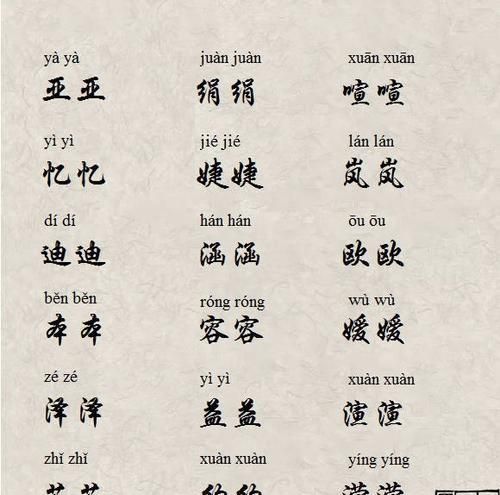 yà yà juàn juàn xuān xuān
亚亚 绢绢 喧喧
yì yì jié jié lán lán
忆忆 婕婕 岚岚
dí dí hán hán ōu ōu
迪迪 涵涵 欧欧
běn běn róng róng wù wù
本本 容容
zé zé yì yì xuàn xuàn
泽泽 益益 渲渲
zhǐ zhǐ xuàn xuàn yíng yíng